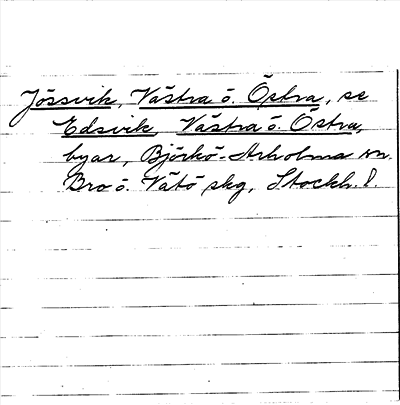 Jössvik, Västra o. Östra, se
Edsvik, Västra o. Östra,
byar, Björkö-Arholma sn.
Bro o. Vätö skg, Stockh. l.